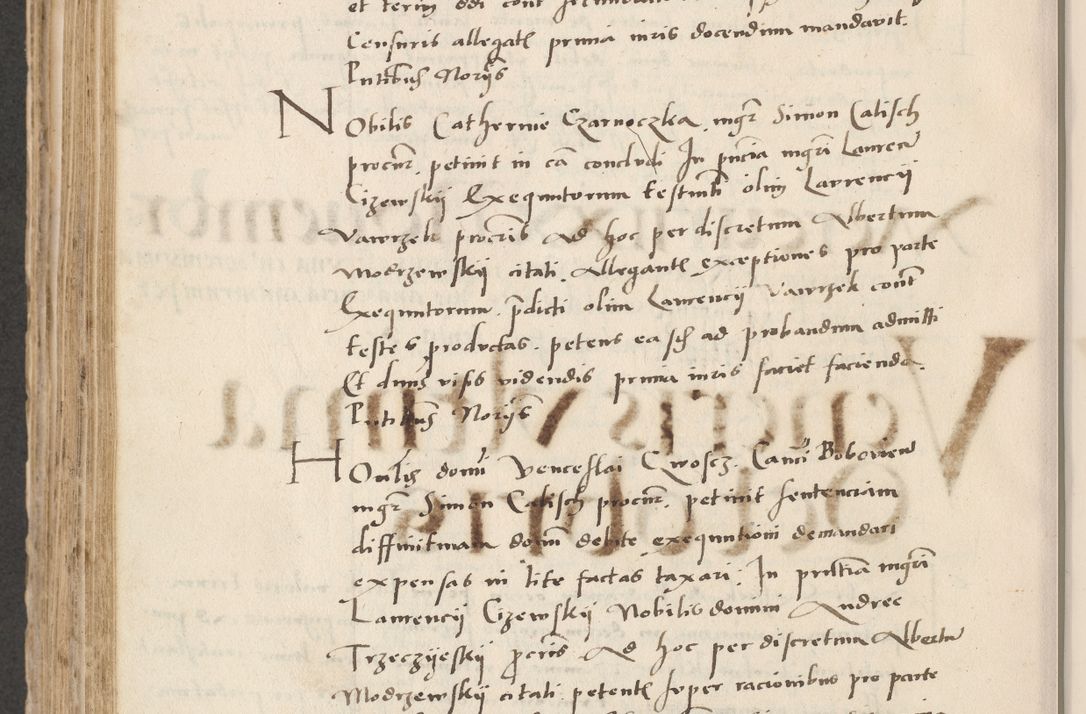 Censuris allegatℓ prima iuris docendum mandavit.
Pntibus Norijs
Nobilis Catherine Czarnoczka, mgr Simon Calisch
procur. petivit in ca concludi In pncia mgri Lauren
Cizewskij Exequutorum testmti olim Laurencij
Vawrzek procuris Ad hoc per discretum Albertum
Modrzewskij citati. Allegantℓ exceptiones pro parte
Exequutorum. pdicti olim Laurencij Vawrzek cont
testes productas. petens eas ad probandum admitti
Et dnus visis videndis prima iuris faciet facienda.
Pntibus Norijs
Honlis domi Venceslai Gwoscz. Canci Bobovien
mgr Simon Calisch procur. petivit sentenciam
diffinitivam domi debite exequutioni demandari
expensas in lite factas taxari. In pntia mgri
Laurencij Cizewskij Nobilis domini Andree
Trzeczijeskij pcuris Ad hoc per discretum Albertu
Modrzewskij citati petentℓ super racionibus pro parte